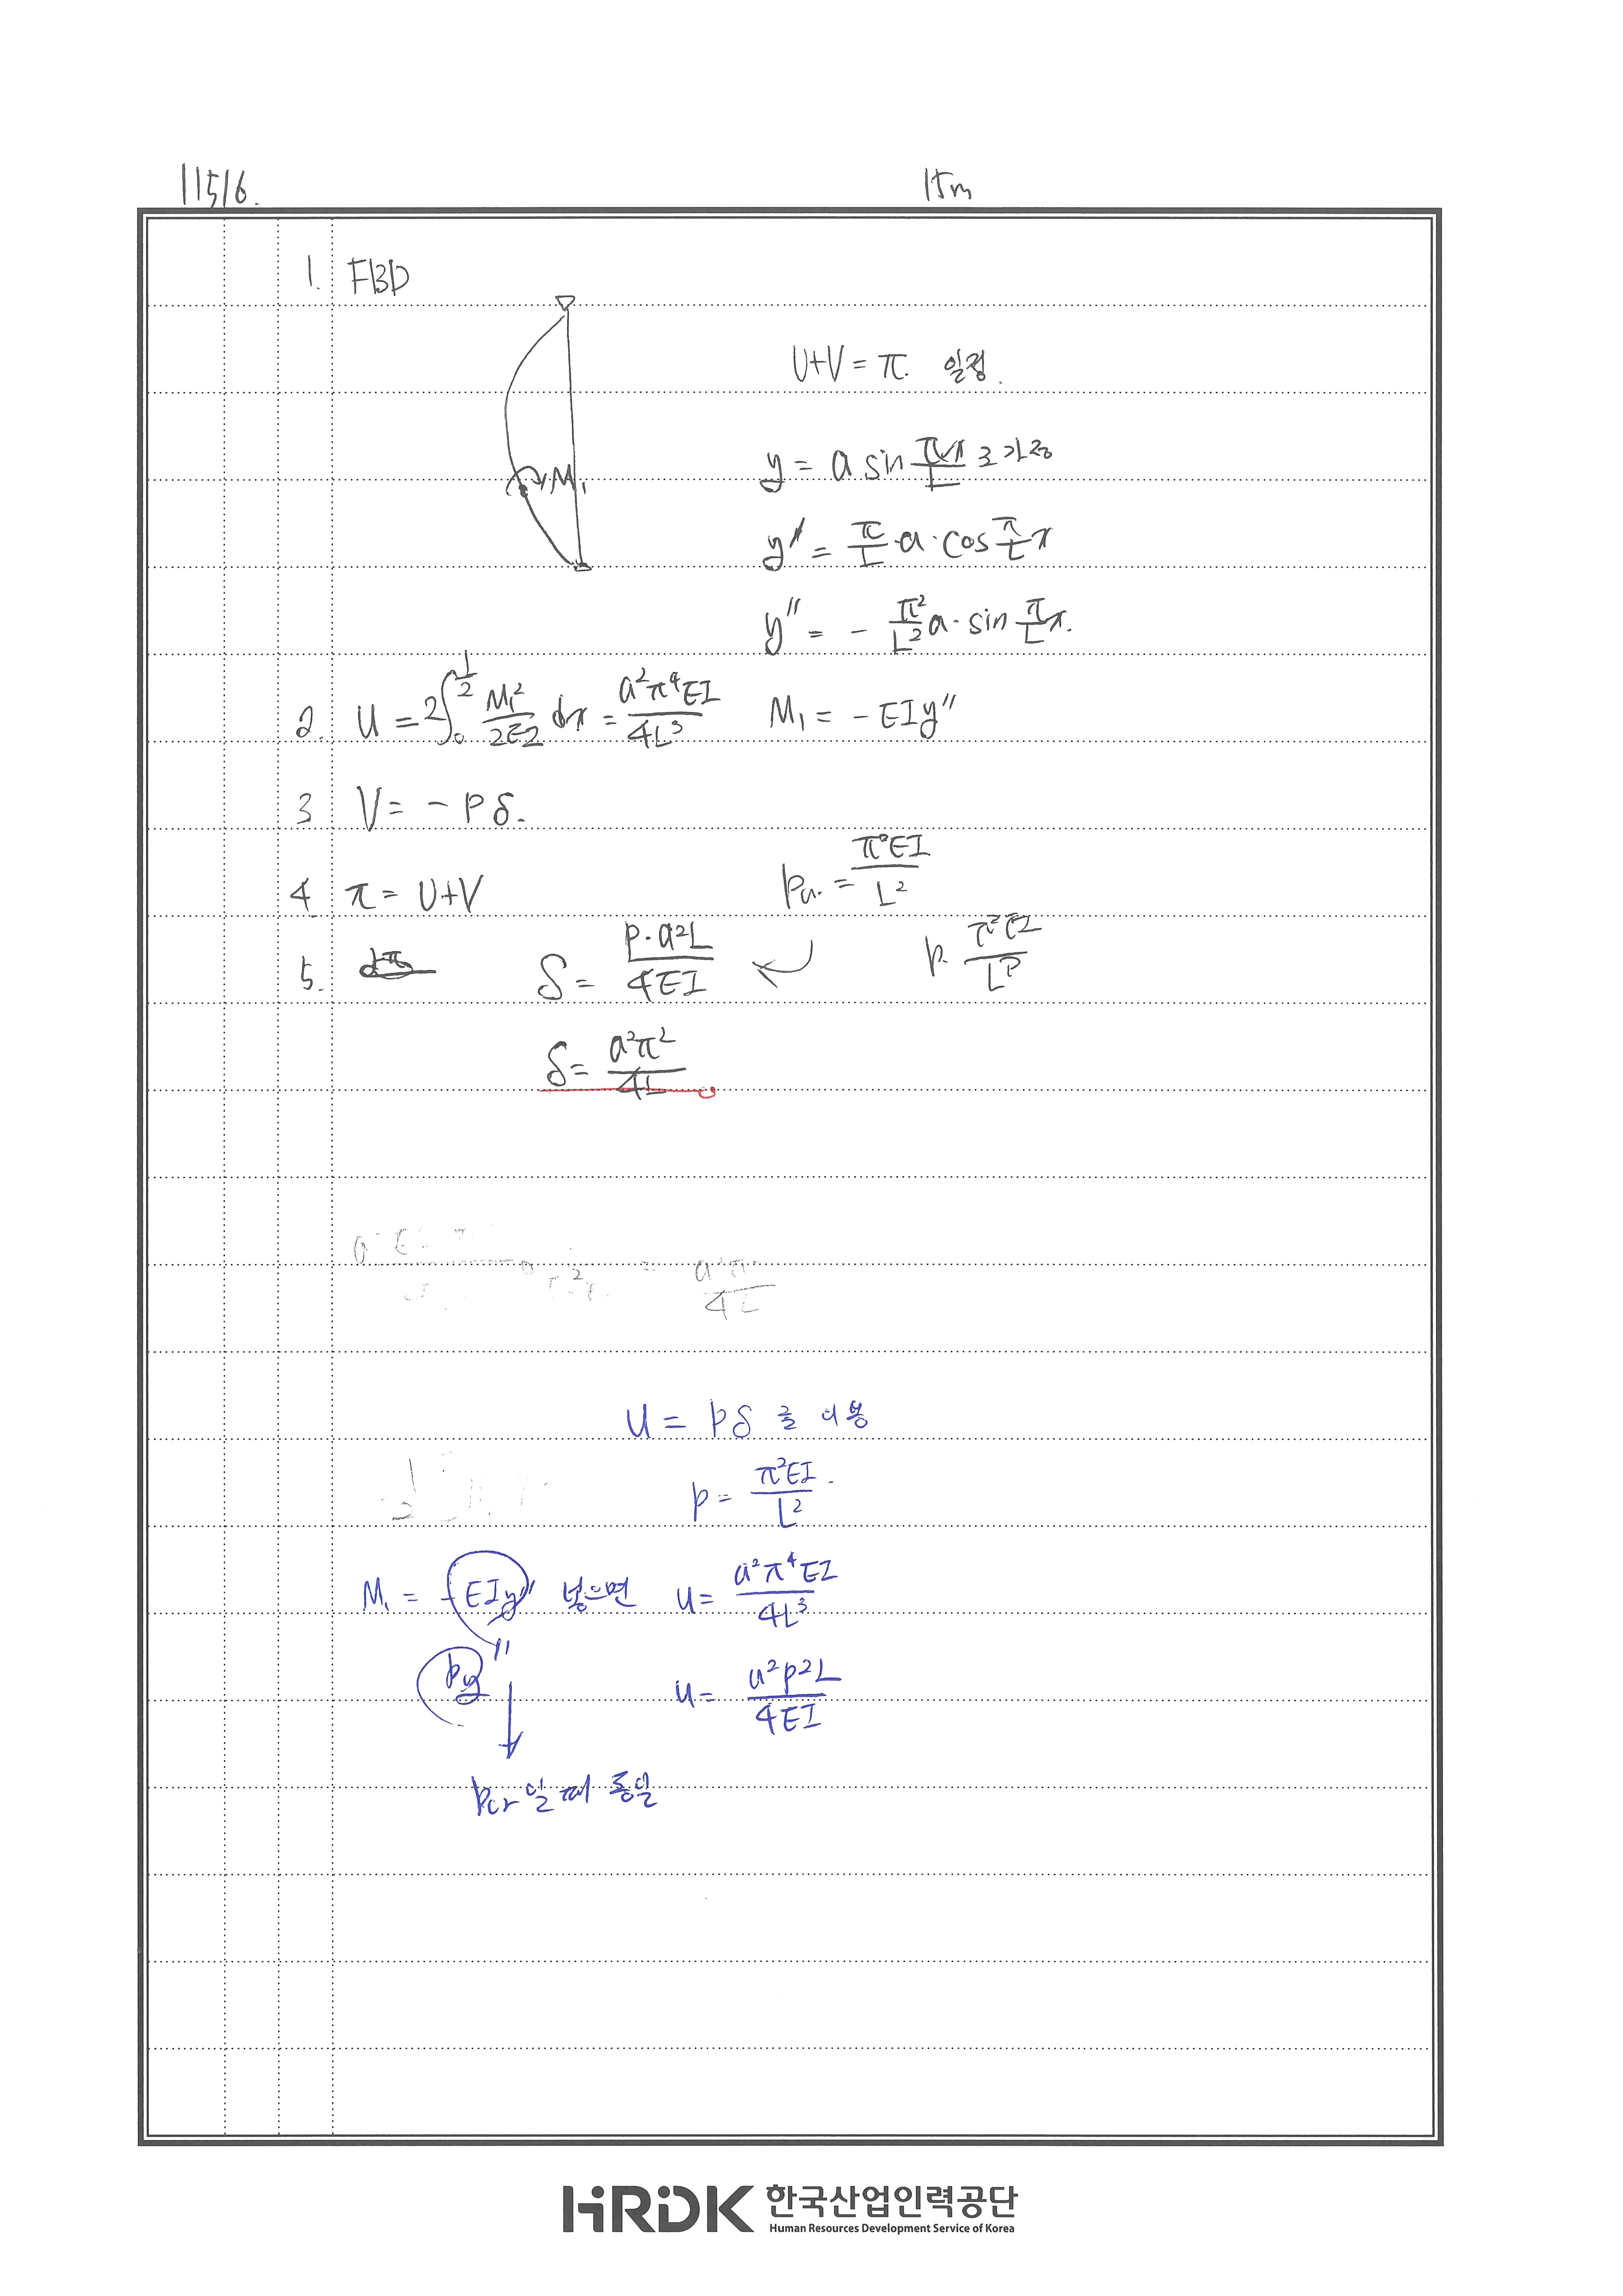 11516.
15m
1. FBD
U+V = π. 일정.
M₁
y = a sin πx/L 로 가정
y' = π/L · a · cos π/L x
y'' = - π²/L² a · sin π/L x.
2. U = 2∫₀^(1/2) M₁²/2EI dx = a²π⁴EI/4L³ M₁ = - EIy''
3 V = - Pδ.
4. π = U+V Pcr. = π²EI/L²
5. δ = P·a²L/4EI P. π²EI/L²
δ = a²π²/4L
a²π²/4L
U = Pδ 를 이용
P = π²EI/L².
M₁ = -EIy'' 넣으면 U = a²π⁴EI/4L³
Py'' U = a²P²L/4EI
Pcr 일때 동일
HRDK 한국산업인력공단
Human Resources Development Service of Korea